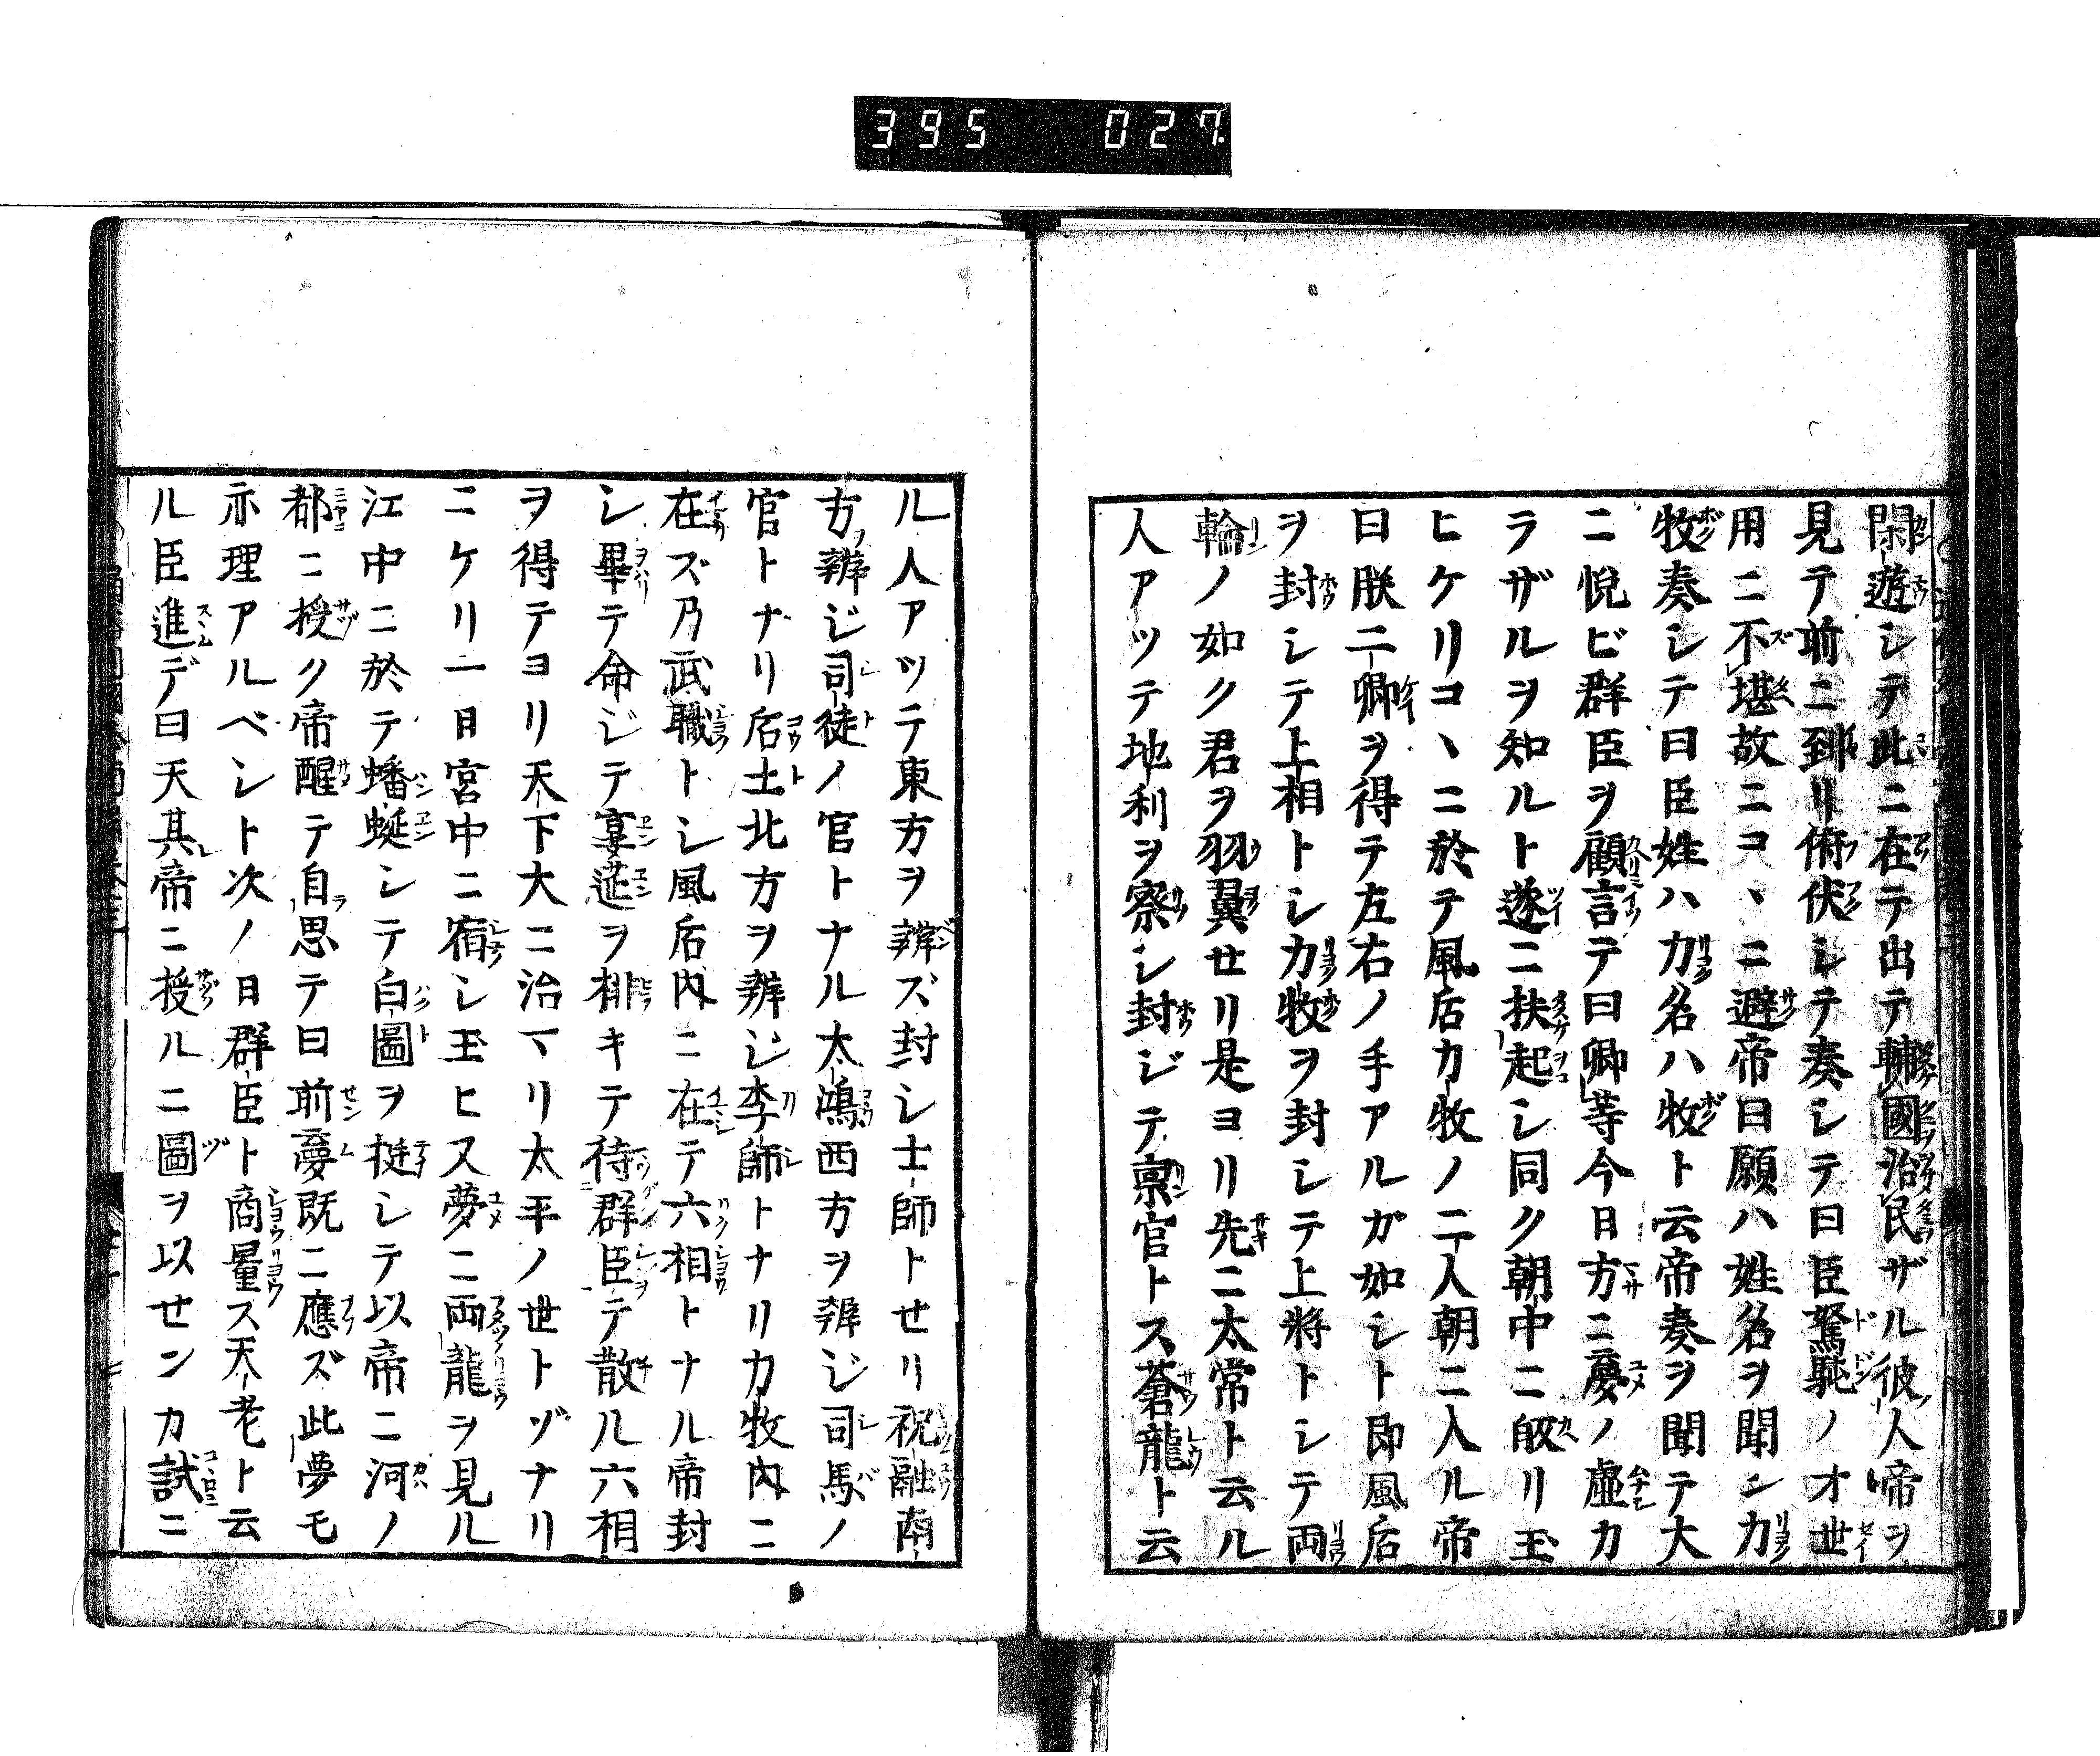 395 027
閑遊シテ此ニ在テ出テ輔國治民ザル彼人帝ヲ
見テ前ニ到リ俯伏シテ奏シテ曰臣駑駘ノオ世
用ニ不堪故ニコヽニ避帝曰願ハ姓名ヲ聞ン力
牧奏シテ曰臣姓ハ力名ハ牧ト云帝奏ヲ聞テ大
ニ悦ビ群臣ヲ顧言テ曰卿等今日方ニ夢ノ虚カ
ラザルヲ知ルト遂ニ扶起シ同ク朝中ニ皈リ玉
ヒケリコヽニ於テ風后力牧ノ二人朝ニ入ル帝
曰朕二卿ヲ得テ左右ノ手アルガ如シト即風后
ヲ封シテ上相トシ力牧ヲ封シテ上將トシテ両
輪ノ如ク君ヲ羽翼セリ是ヨリ先ニ太常ト云ル
人アツテ地利ヲ察シ封ジテ禀官トス蒼龍ト云
ル人アツテ東方ヲ辨ズ封シ士師トセリ祝融南
方辨ジ司徒ノ官トナル太鴻西方ヲ辨ジ司馬ノ
官トナリ后土北方ヲ辨ジ李師トナリ力牧内ニ
在ズ乃武職トシ風后内ニ在テ六相トナル帝封
シ畢テ命ジテ宴莚ヲ排キテ待群臣テ散ル六相
ヲ得テヨリ天下大ニ治マリ太平ノ世トゾナリ
ニケリ一日宮中ニ宿シ玉ヒス夢ニ両龍ヲ見ル
江中ニ於テ蟠蜒シテ白圖ヲ挺シテ以帝ニ河ノ
都ニ授ク帝醒テ自思テ曰前夢既ニ應ズ此夢モ
亦理アルベシト次ノ日群臣ト商量ス天老ト云
ル臣進デ曰天其帝ニ授ルニ圖ヲ以センカ試ニ